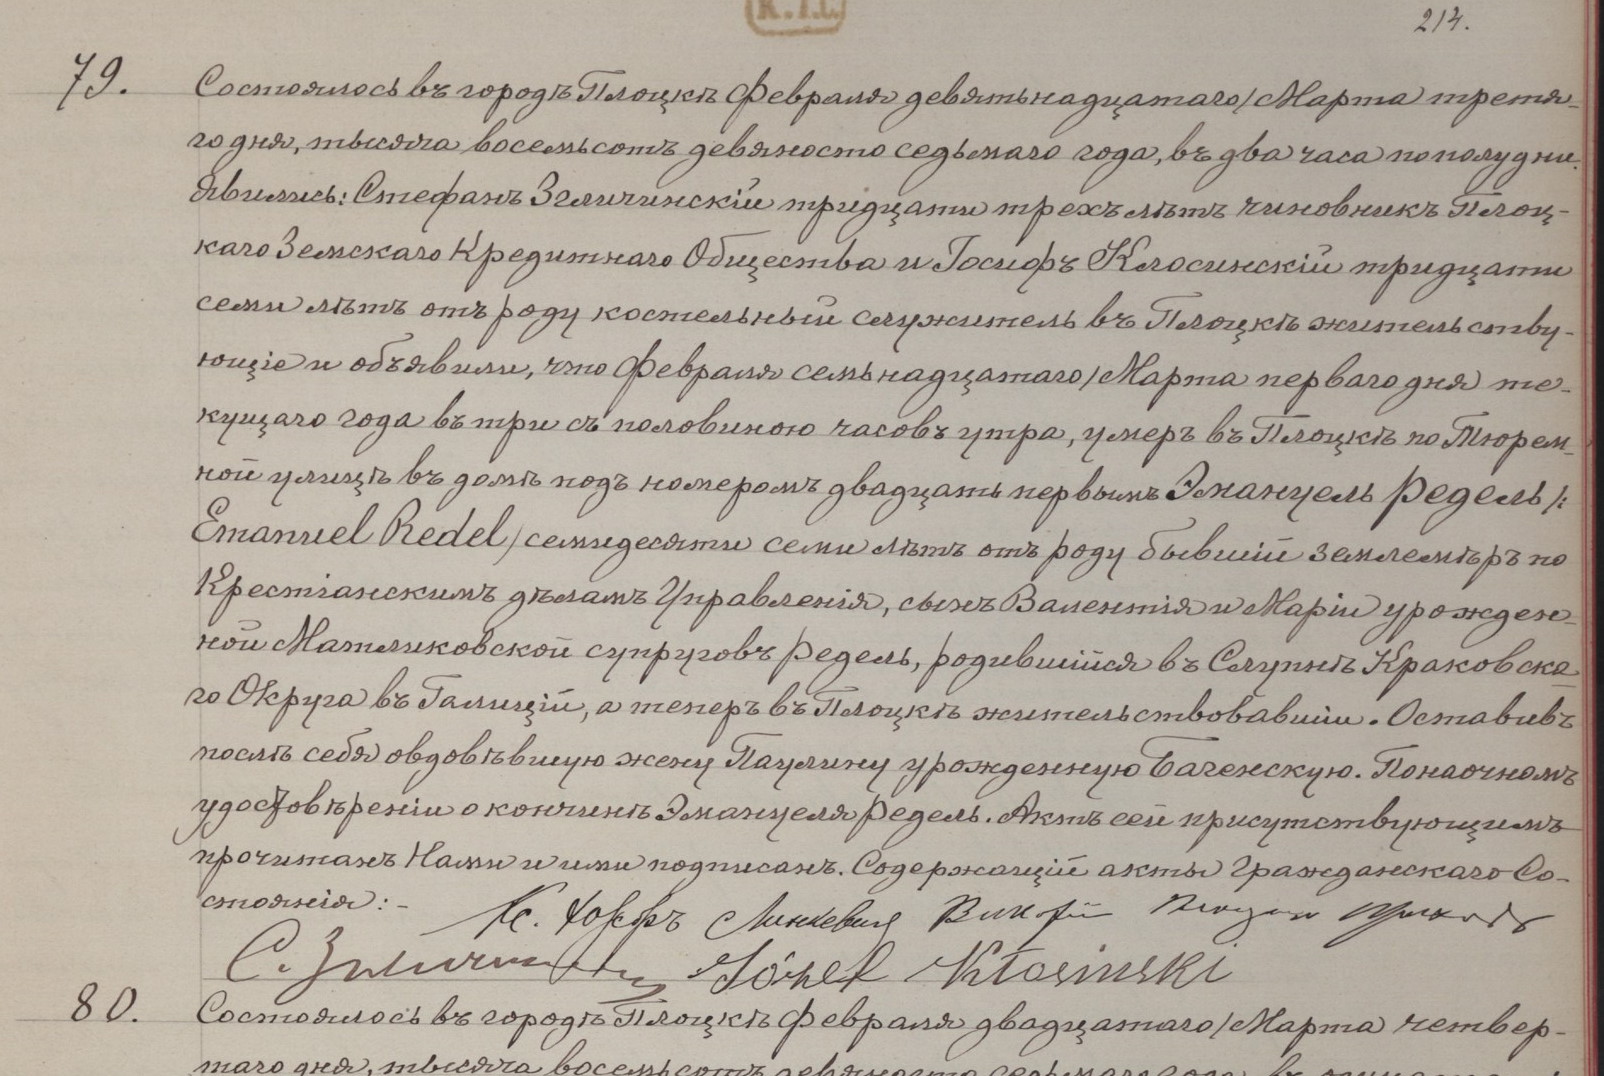 К.П.
214.
79. Состоялось въ городѣ Плоцкѣ Февраля девятьнадцатаго / Марта третя-
го дня, тысяча восемьсотъ девяносто седьмаго года, въ два часа по полудни.
Явились: Стефанъ Згличинскій тридцати трехъ лѣтъ чиновникъ Плоц-
каго Земскаго Кредитнаго Общества и Іосифъ Клосинскій тридцати
семи лѣтъ отъ роду костельный служитель въ Плоцкѣ жительству-
ющіе и объявили, что Февраля семьнадцатаго / Марта перваго дня те-
кущаго года въ три съ половиною часовъ утра, умеръ въ Плоцкѣ по Тюрем-
ной улицѣ въ домѣ подъ номеромъ двадцать первымъ Эмануель Редель /:
Emanuel Redel / семидесяти семи лѣтъ отъ роду бывшій землемѣръ по
Крестіанскимъ дѣламъ Управленія, сынъ Валентія и Маріи урожден-
ной Матликовской супруговъ Редель, родившійся въ Слупнѣ Краковска-
го Округа въ Галиціи, а теперъ въ Плоцкѣ жительствовавшій. Оставивъ
послѣ себя овдовѣвшую жену Паулину урожденную Баченскую. По наочномъ
удостовѣреніи о кончинѣ Эмануеля Редель. Актъ сей присутствующимъ
прочитанъ Нами и ими подписанъ. Содержащій акты Гражданскаго Со-
стоянія: -
Кс. Іосифъ Линкевич Викарій
С. Згличинскій Józef Kłosiński
80. Состоялось въ городѣ Плоцкѣ Февраля двадцатаго / Марта четвер-
таго дня, тысяча восемьсотъ девяносто седьмаго года, въ